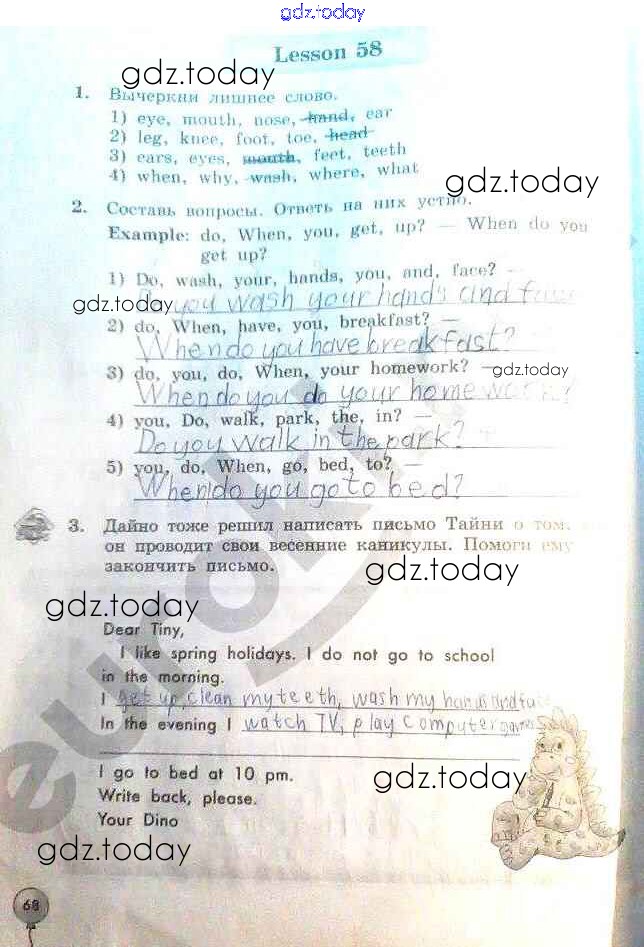 gdz.today
Lesson 58
gdz.today
1. Вычеркни лишнее слово.
1) eye, mouth, nose, hand, ear
2) leg, knee, foot, toe, head
3) ears, eyes, mouth, feet, teeth
4) when, why, wash, where, what
gdz.today
2. Составь вопросы. Ответь на них устно.
Example: do, When, you, get, up? — When do you
get up?
1) Do, wash, your, hands, you, and, face? —
gdz.today
Do you wash your hands and face
2) do, When, have, you, breakfast? —
When do you have breakfast?
3) do, you, do, When, your homework? —
gdz.today
When do you do your homework?
4) you, Do, walk, park, the, in? —
Do you walk in the park?
5) you, do, When, go, bed, to? —
When do you go to bed?
3. Дайно тоже решил написать письмо Тайни о том,
он проводит свои весенние каникулы. Помоги ему
закончить письмо.
gdz.today
gdz.today
Dear Tiny,
I like spring holidays. I do not go to school
in the morning.
I get up, clean my teeth, wash my hands and face
In the evening I watch TV, play computer games
I go to bed at 10 pm.
gdz.today
Write back, please.
Your Dino
gdz.today
68